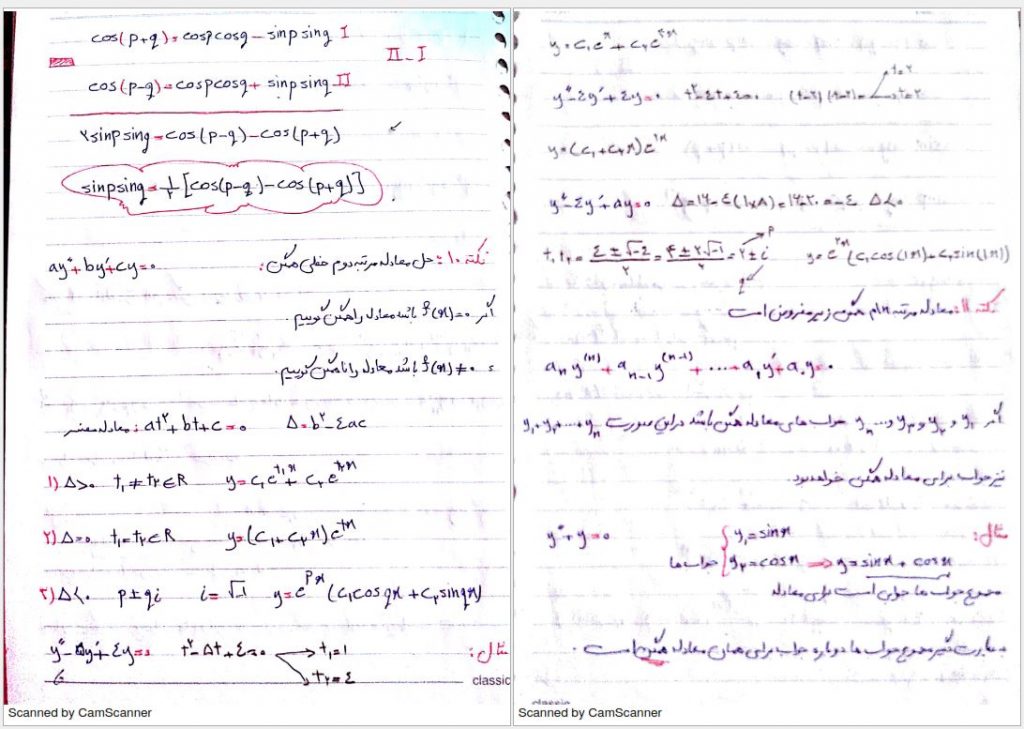 cos(p+q) = cospcosq - sinpsinq I
II - I
cos(p-q) = cospcosq + sinpsinq II
۲sinpsinq = cos(p-q) - cos(p+q)
sinpsinq = ۱/۲ [cos(p-q) - cos(p+q)]
نکته ۱۰: حل معادله مرتبه دوم خطی همگن: ay″ + by′ + cy = ۰
اگر f(x) = ۰ باشد معادله را همگن گوییم.
f(x) ≠ ۰ باشد معادله را ناهمگن گوییم.
معادله مفسر: at² + bt + c = ۰ Δ = b² - ٤ac
۱) Δ > ۰ t₁ ≠ t₂ ∈ R y = c₁e^{t₁x} + c₂e^{t₂x}
۲) Δ = ۰ t₁ = t₂ ∈ R y = (c₁ + c₂x)e^{tx}
۳) Δ < ۰ p ± qi i = √-1 y = e^{px}(c₁cosqx + c₂sinqx)
مثال: y″ - ۵y′ + ٤y = ۰ t² - ۵t + ٤ = ۰ t₁ = ۱
t₂ = ٤
classic
Scanned by CamScanner
y = c₁e^{x} + c₂e^{٤x}
y″ - ٤y′ + ٤y = ۰ t² - ٤t + ٤ = ۰ (t-۲)(t-۲) = ۰ t = ۲
t = ۲
y = (c₁ + c₂x)e^{۲x}
y″ - ٤y′ + ۵y = ۰ Δ = ۱۶ - ٤(۱×۵) = ۱۶ - ۲۰ = -٤ Δ < ۰
t₁, t₂ = (٤ ± √-٤)/۲ = (۴ ± ۲√-۱)/۲ = ۲ ± i p q y = e^{۲x}(c₁cos(۱x) + c₂sin(۱x))
نکته ۱۱: معادله مرتبه n ام همگن زیر مفروض است
aₙy⁽ⁿ⁾ + aₙ₋₁y⁽ⁿ⁻¹⁾ + ... + a₁y′ + a₀y = ۰
اگر y₁ و y₂ و y₃ و ... yₙ جواب های معادله همگن باشند در این صورت y₁ + y₂ + ... + yₙ
نیز جواب برای معادله همگن خواهد بود.
مثال: y″ + y = ۰ y₁ = sinx
y₂ = cosx ⇒ y = sinx + cosx جواب ها
مجموع جواب ها جوابی است برای معادله
به عبارت دیگر مجموع جواب ها دوباره جواب برای همان معادله همگن است.
Scanned by CamScanner